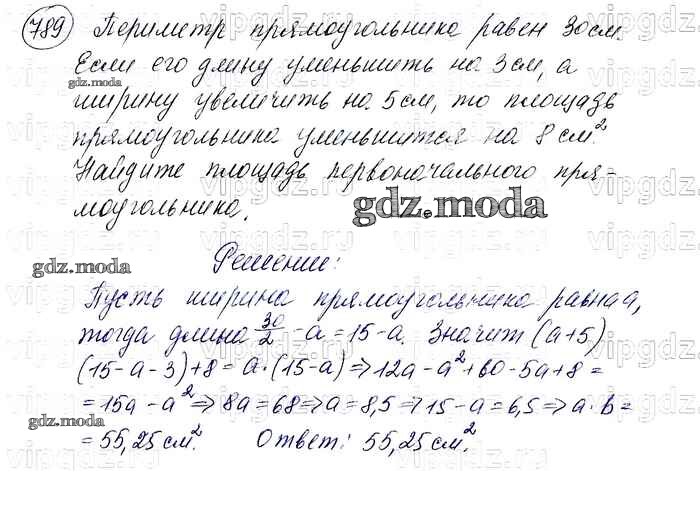 789 Периметр прямоугольника равен 30 см.
Если его длину уменьшить на 3 см, а
gdz.moda
ширину увеличить на 5 см, то площадь
прямоугольника уменьшится на 8 см²
Найдите площадь первоначального пря-
моугольника.
gdz.moda
Решение:
gdz.moda
Пусть ширина прямоугольника равна a,
тогда длина 30/2 - a = 15 - a. Значит (a+5)
(15-a-3)+8 = a·(15-a) ⇒ 12a - a² + 60 - 5a + 8 =
= 15a - a² ⇒ 8a = 68 ⇒ a = 8,5 ⇒ 15 - a = 6,5 ⇒ a·b =
gdz.moda
= 55,25 см² Ответ: 55,25 см².